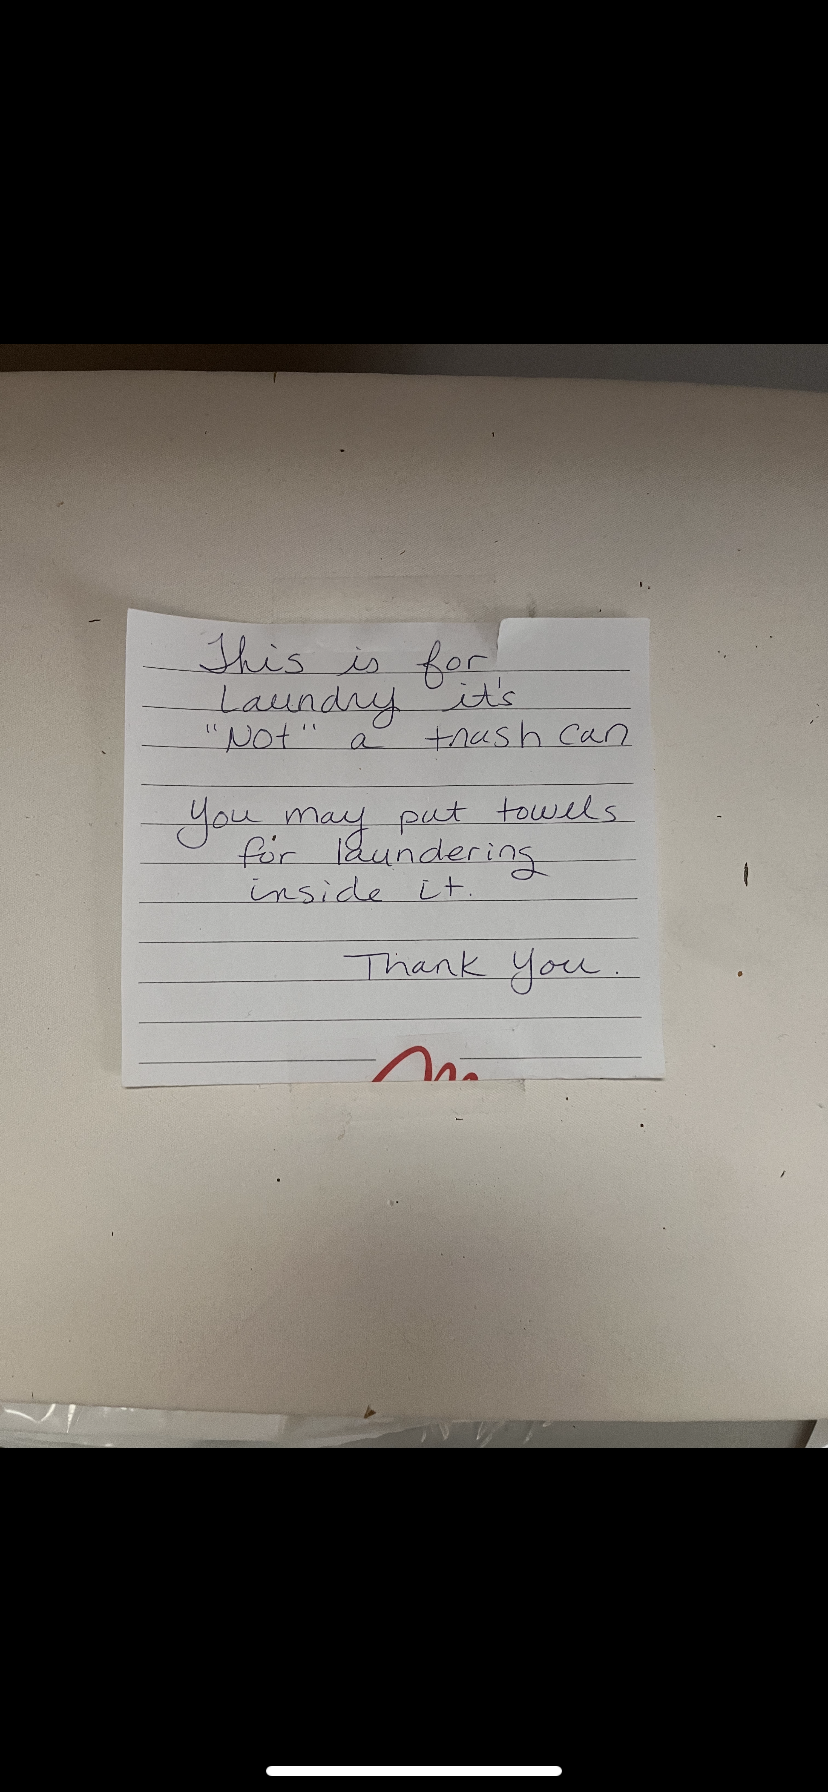 This is for
Laundry it's
"Not" a trash can
You may put towels
for laundering
inside it.
Thank You.